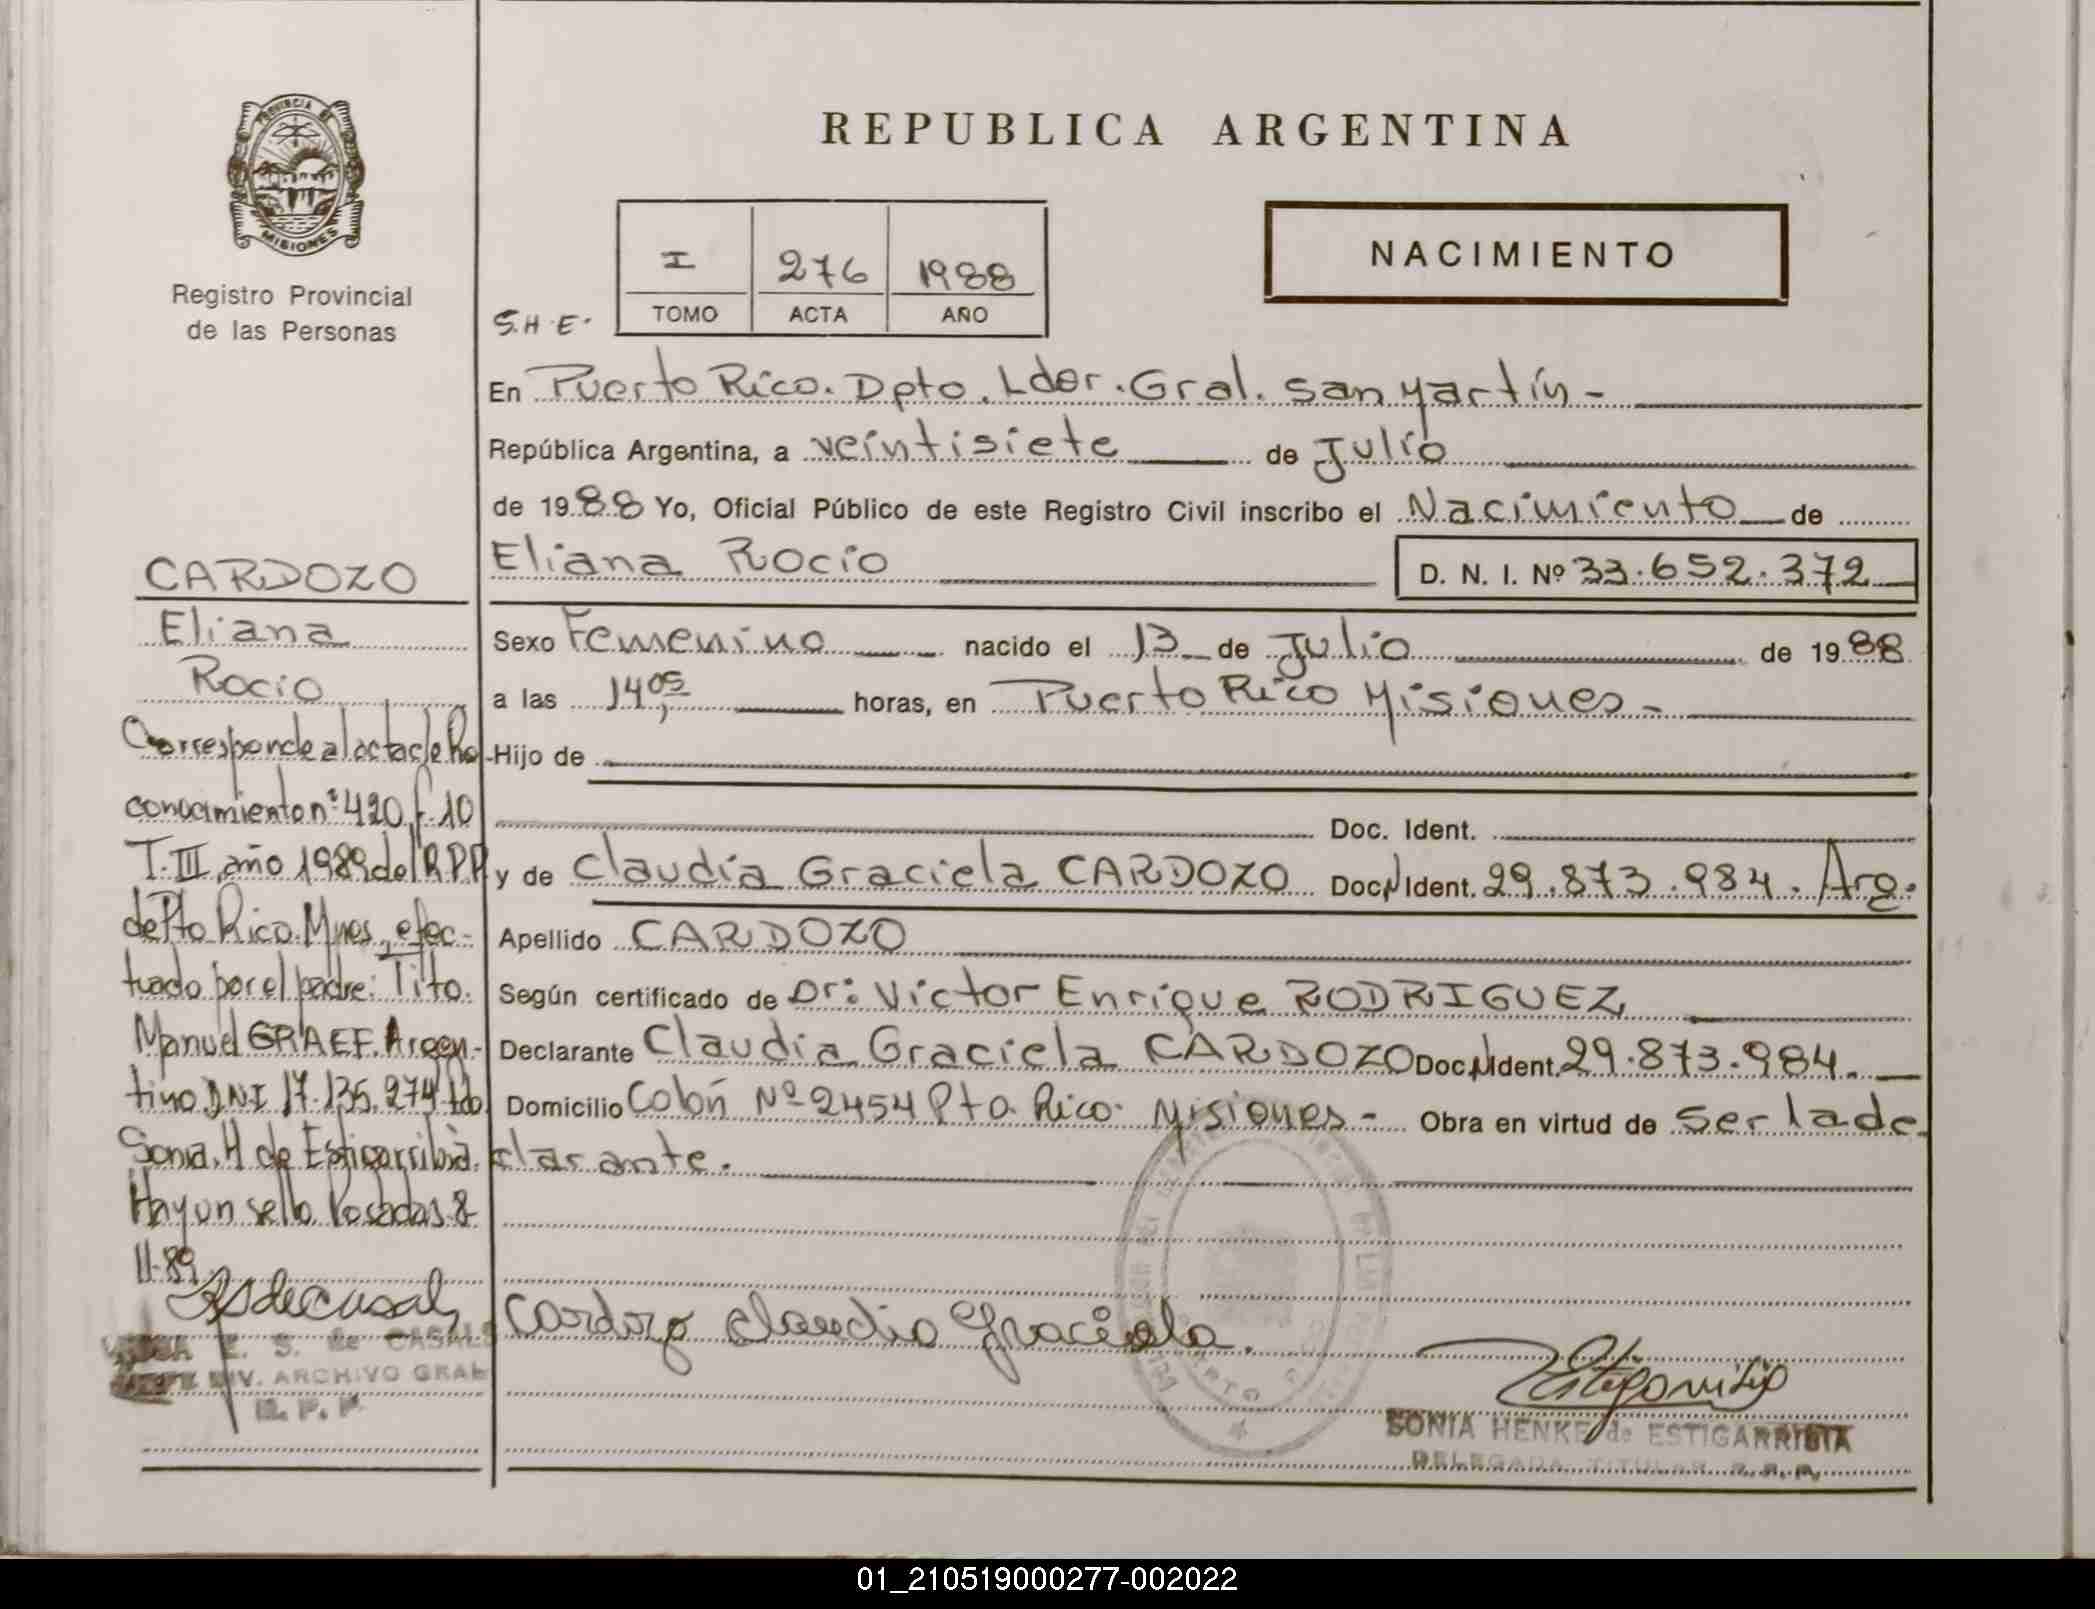 REPUBLICA ARGENTINA
PROVINCIA DE
MISIONES
Registro Provincial
de las Personas
I 276 1988
TOMO ACTA AÑO
S.H.E.
NACIMIENTO
En Puerto Rico. Dpto. Ldor. Gral. San Martín -
República Argentina, a veintisiete de Julio
de 1988 Yo, Oficial Público de este Registro Civil inscribo el Nacimiento de
Eliana Rocio D. N. I. Nº 33.652.372
Sexo Femenino nacido el 13 de Julio de 1988
a las 14,05 horas, en Puerto Rico Misiones -
Hijo de
Doc. Ident.
y de Claudia Graciela CARDOZO Doc. N Ident. 29.873.984. Arg.
Apellido CARDOZO
Según certificado de Dr: Victor Enrique RODRIGUEZ
Declarante Claudia Graciela CARDOZO Doc. N Ident. 29.873.984.
Domicilio Colón Nº 2454 Pto. Rico. Misiones - Obra en virtud de ser la de-
clarante.
Cardozo Claudia Graciela.
SONIA HENKE de ESTIGARRIBIA
DELEGADA TITULAR R.P.P.
CARDOZO
Eliana
Rocio
Corresponde al acta de Re-
conocimiento nº 420, f. 10
T. III, año 1989 del R.P.P.
de Pto Rico. Mnes, efec-
tuado por el padre: Tito.
Manuel GRAEF. Argen-
tino DNI 17.135.274 fdo
Sonia. H de Estigarribia.
Hay un sello. Posadas. 8-
11-89.
E. S. de CASALS
DIV. ARCHIVO GRAL
R. P. P.
01_210519000277-002022